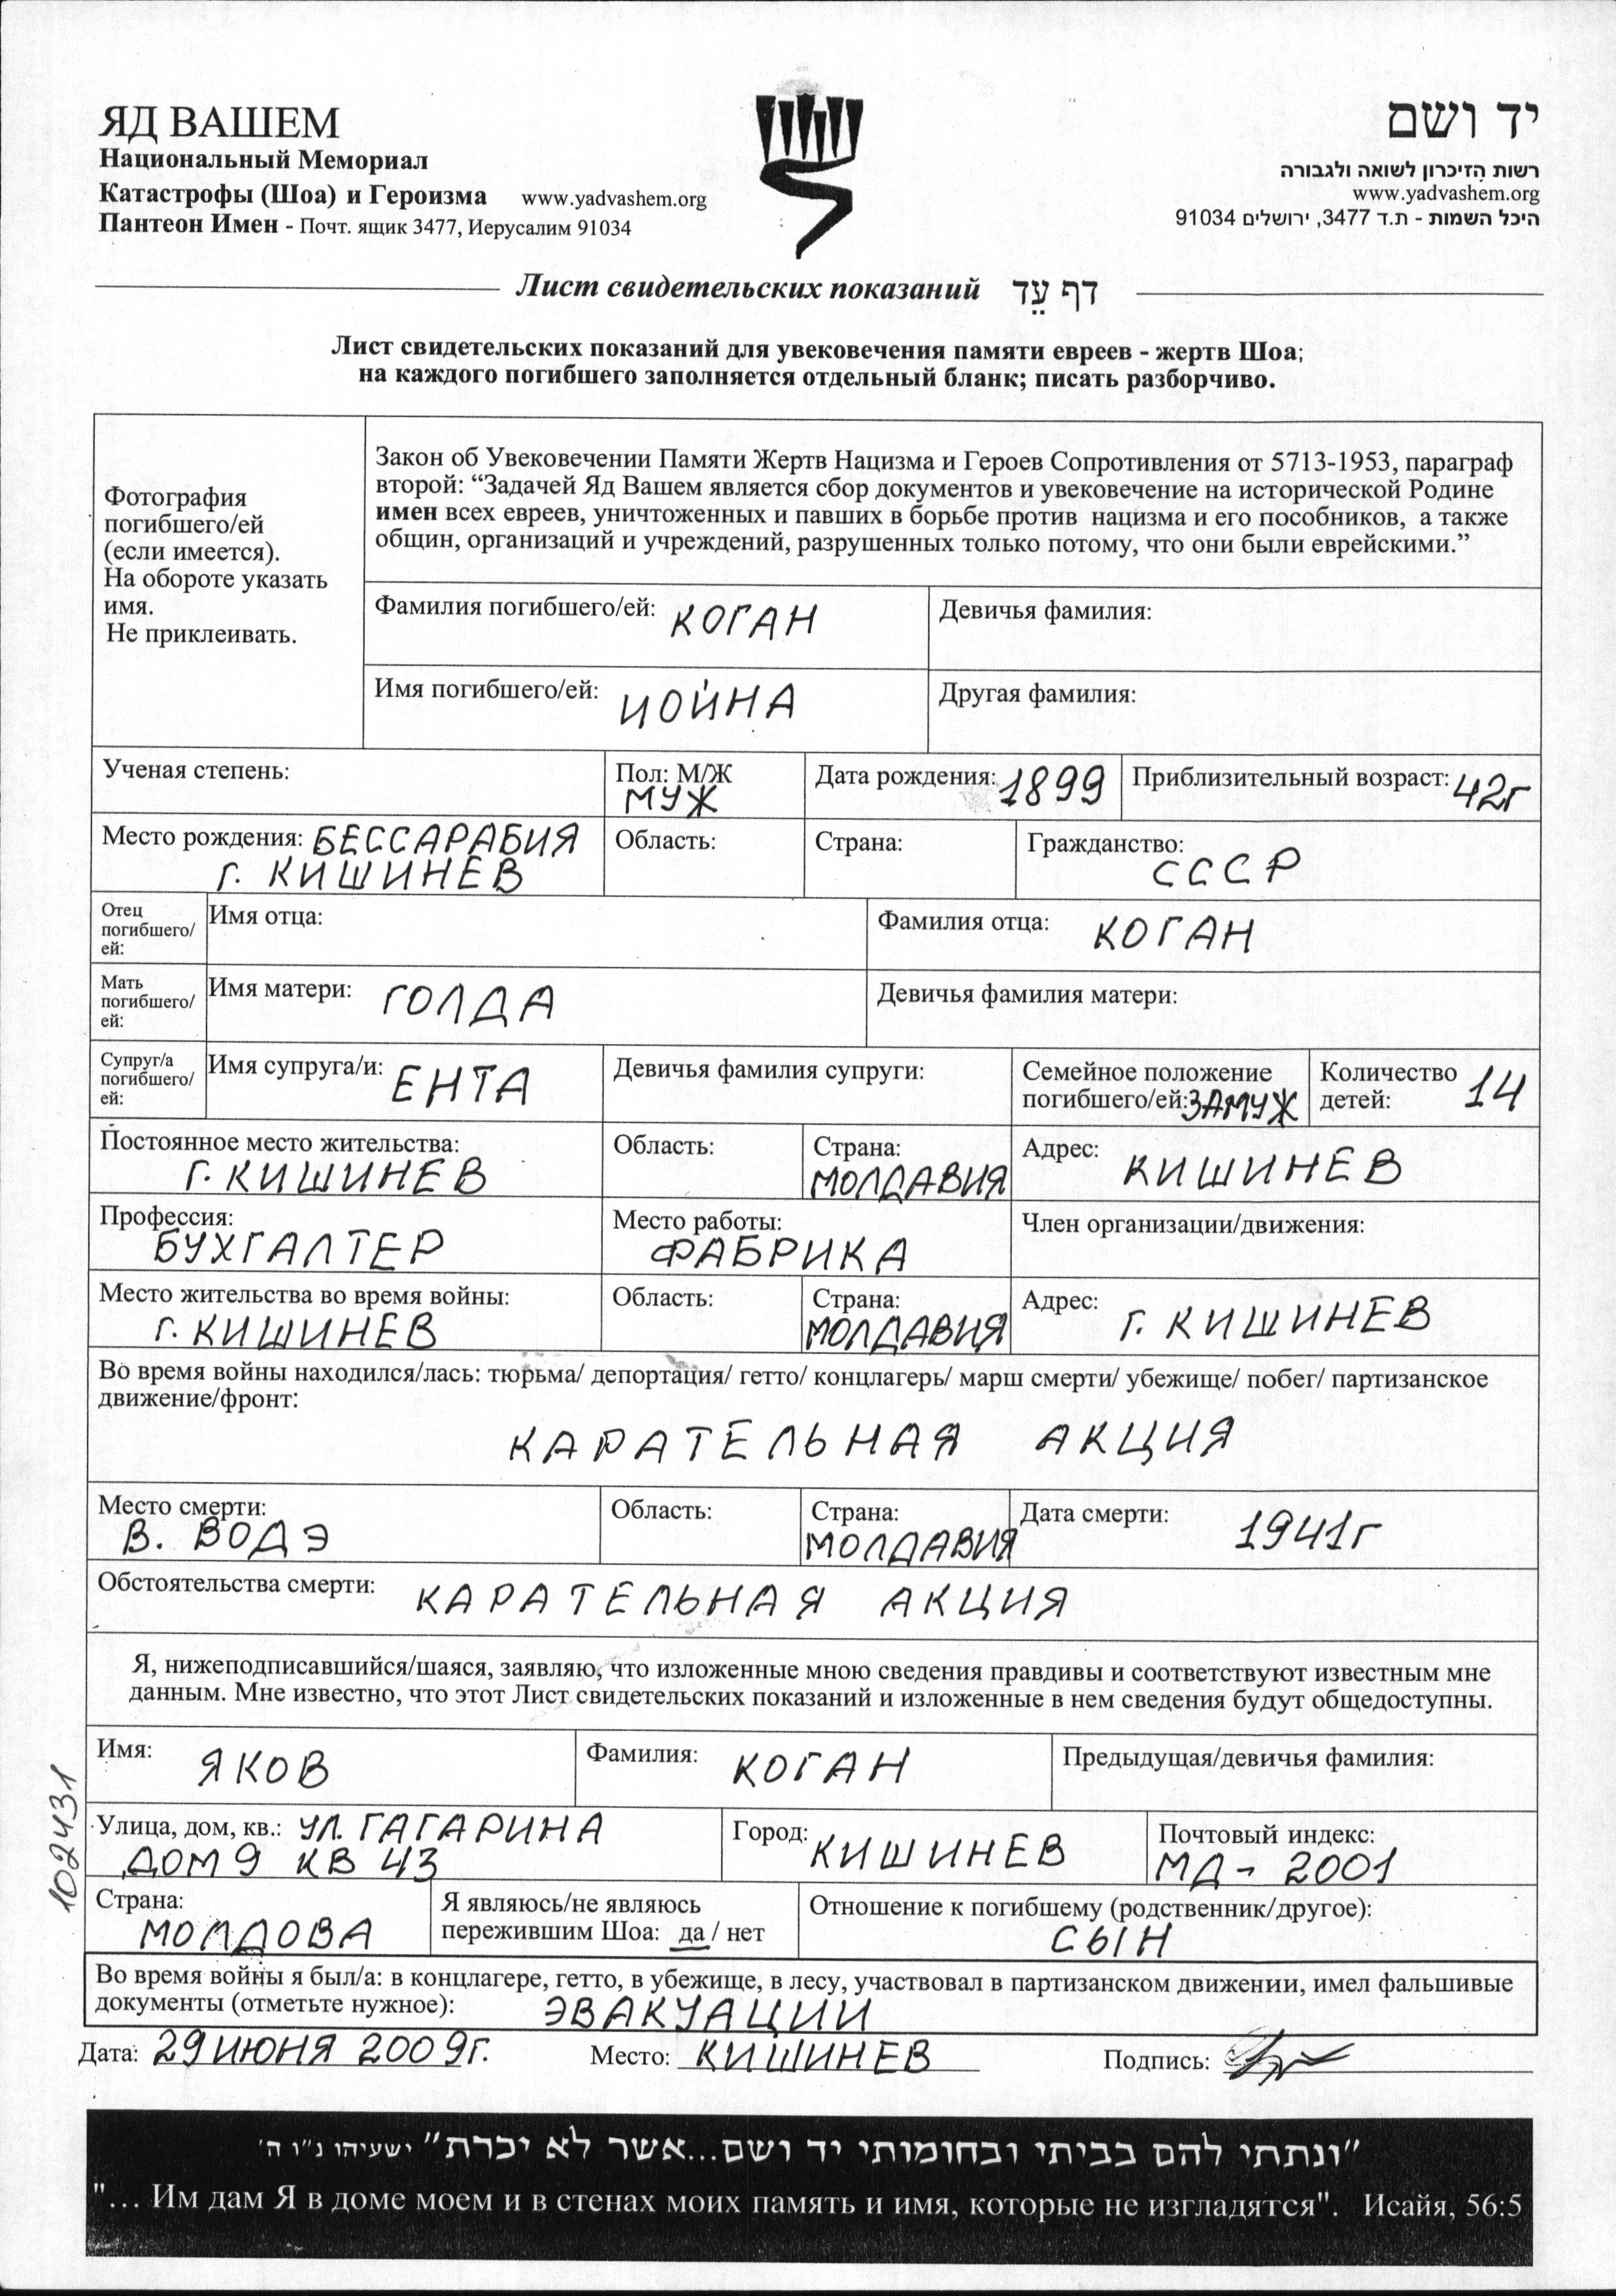 ЯД ВАШЕМ
Национальный Мемориал
Катастрофы (Шоа) и Героизма www.yadvashem.org
Пантеон Имен - Почт. ящик 3477, Иерусалим 91034
יד ושם
רשות הזיכרון לשואה ולגבורה
www.yadvashem.org
היכל השמות - ת.ד 3477, ירושלים 91034
Лист свидетельских показаний דף עֵד
Лист свидетельских показаний для увековечения памяти евреев - жертв Шоа;
на каждого погибшего заполняется отдельный бланк; писать разборчиво.
Фотография
погибшего/ей
(если имеется).
На обороте указать
имя.
Не приклеивать.
Закон об Увековечении Памяти Жертв Нацизма и Героев Сопротивления от 5713-1953, параграф
второй: “Задачей Яд Вашем является сбор документов и увековечение на исторической Родине
имен всех евреев, уничтоженных и павших в борьбе против нацизма и его пособников, а также
общин, организаций и учреждений, разрушенных только потому, что они были еврейскими.”
Фамилия погибшего/ей: КОГАН
Девичья фамилия:
Имя погибшего/ей: ИОЙНА
Другая фамилия:
Ученая степень:
Пол: М/Ж
МУЖ
Дата рождения: 1899
Приблизительный возраст: 42г
Место рождения: БЕССАРАБИЯ
г. КИШИНЕВ
Область:
Страна:
Гражданство:
СССР
Отец
погибшего/
ей:
Имя отца:
Фамилия отца: КОГАН
Мать
погибшего/
ей:
Имя матери: ГОЛДА
Девичья фамилия матери:
Супруг/а
погибшего/
ей:
Имя супруга/и: ЕНТА
Девичья фамилия супруги:
Семейное положение
погибшего/ей: ЗАМУЖ
Количество
детей: 14
Постоянное место жительства:
г. КИШИНЕВ
Область:
Страна:
МОЛДАВИЯ
Адрес: КИШИНЕВ
Профессия:
БУХГАЛТЕР
Место работы:
ФАБРИКА
Член организации/движения:
Место жительства во время войны:
г. КИШИНЕВ
Область:
Страна:
МОЛДАВИЯ
Адрес: г. КИШИНЕВ
Во время войны находился/лась: тюрьма/ депортация/ гетто/ концлагерь/ марш смерти/ убежище/ побег/ партизанское
движение/фронт:
КАРАТЕЛЬНАЯ АКЦИЯ
Место смерти:
В. ВОДЭ
Область:
Страна:
МОЛДАВИЯ
Дата смерти: 1941г
Обстоятельства смерти: КАРАТЕЛЬНАЯ АКЦИЯ
Я, нижеподписавшийся/шаяся, заявляю, что изложенные мною сведения правдивы и соответствуют известным мне
данным. Мне известно, что этот Лист свидетельских показаний и изложенные в нем сведения будут общедоступны.
Имя: ЯКОВ
Фамилия: КОГАН
Предыдущая/девичья фамилия:
Улица, дом, кв.: УЛ. ГАГАРИНА
ДОМ 9 КВ 43
Город: КИШИНЕВ
Почтовый индекс:
МД- 2001
102431
Страна:
МОЛДОВА
Я являюсь/не являюсь
пережившим Шоа: да / нет
Отношение к погибшему (родственник/другое):
СЫН
Во время войны я был/а: в концлагере, гетто, в убежище, в лесу, участвовал в партизанском движении, имел фальшивые
документы (отметьте нужное): ЭВАКУАЦИИ
Дата: 29 ИЮНЯ 2009г. Место: КИШИНЕВ Подпись:
"ונתתי להם בביתי ובחומותי יד ושם...אשר לא יכרת" ישעיהו נ"ו ה'
"… Им дам Я в доме моем и в стенах моих память и имя, которые не изгладятся". Исайя, 56:5